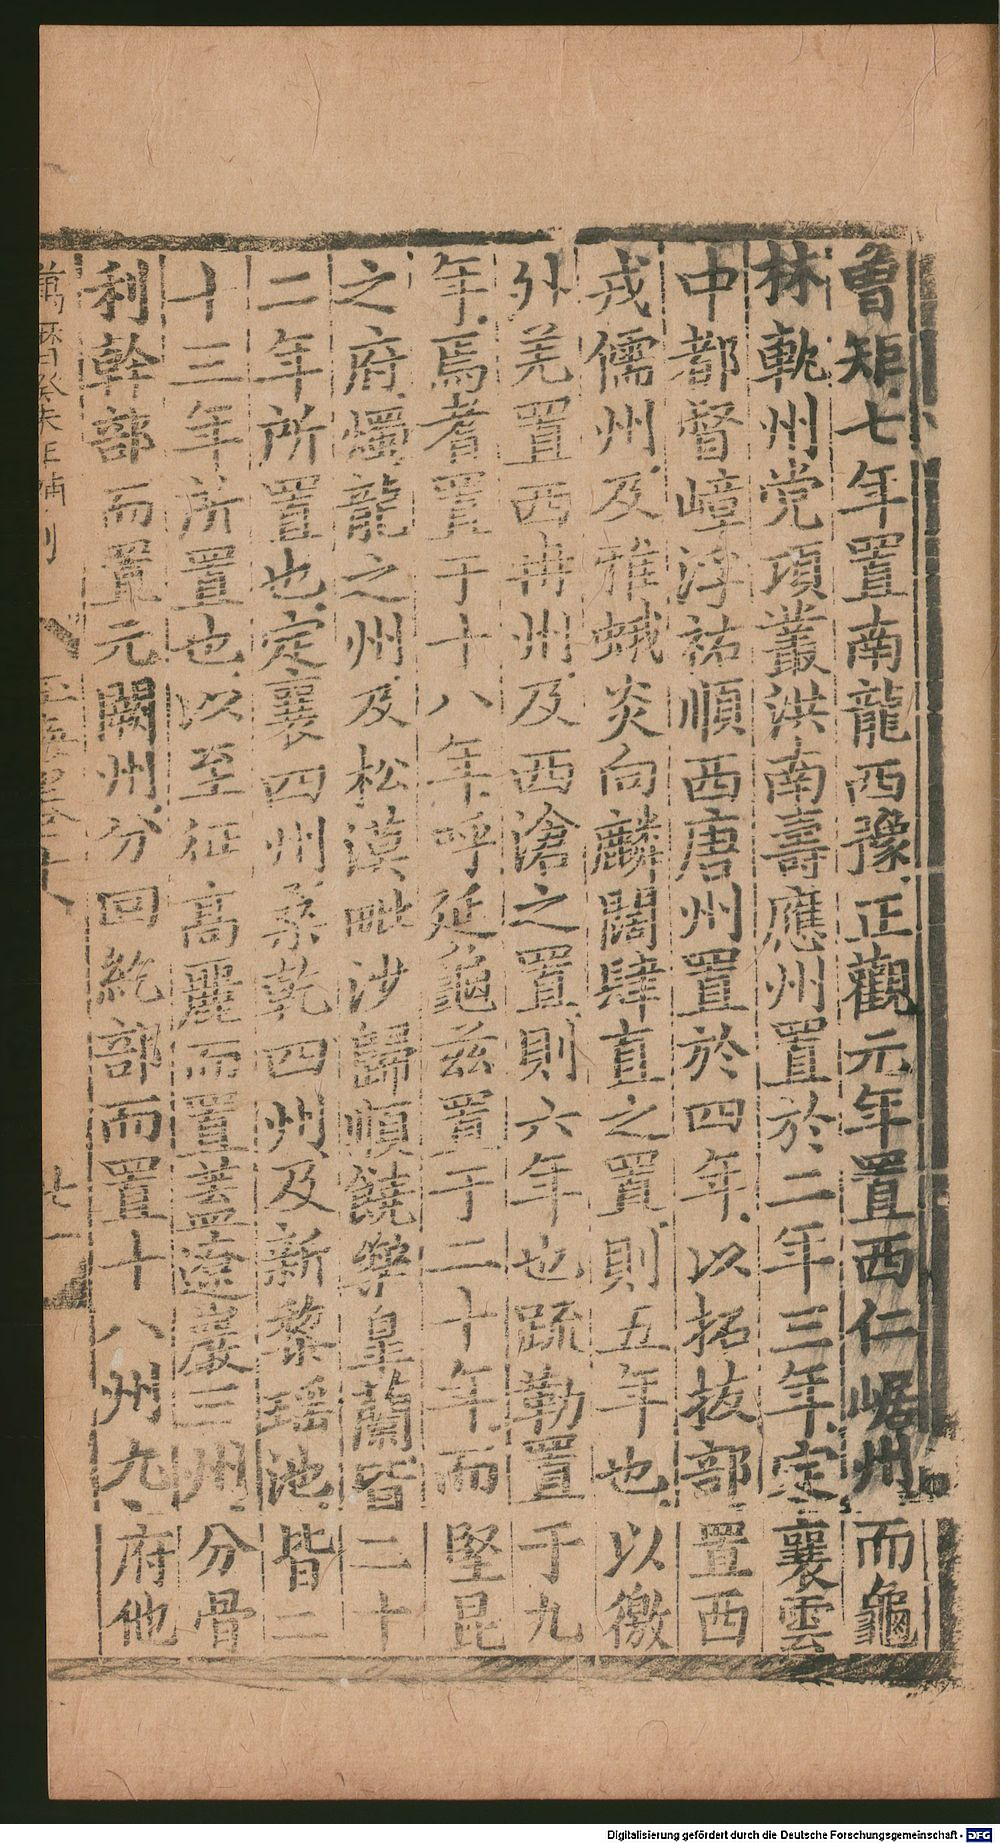 曾矩七年置南龍西豫正觀元年置西仁崌州而龜
林軌州党項叢洪南壽應州置於二年三年定襄雲
中都督嶂浮祐順西唐州置於四年以拓拔部置西
戎儒州及雅蛾炎向麟闊肆直之置則五年也以徼
外羌置西冉州及西滄之置則六年也疏勒置于九
年焉耆置于十八年呼延龜兹置于二十年而堅昆
之府燭龍之州及松漠毗沙歸順饒樂皐蘭皆二十
二年所置也定襄四州桑乾四州及新黎瑶池皆二
十三年所置也以至征髙麗而置蓋遼巖三州分骨
利幹部而置元闕州分回紇部而置十八州九府他
萬曆癸未年補刊
玉海卷十八
廿一
Digitalisierung gefördert durch die Deutsche Forschungsgemeinschaft - DFG